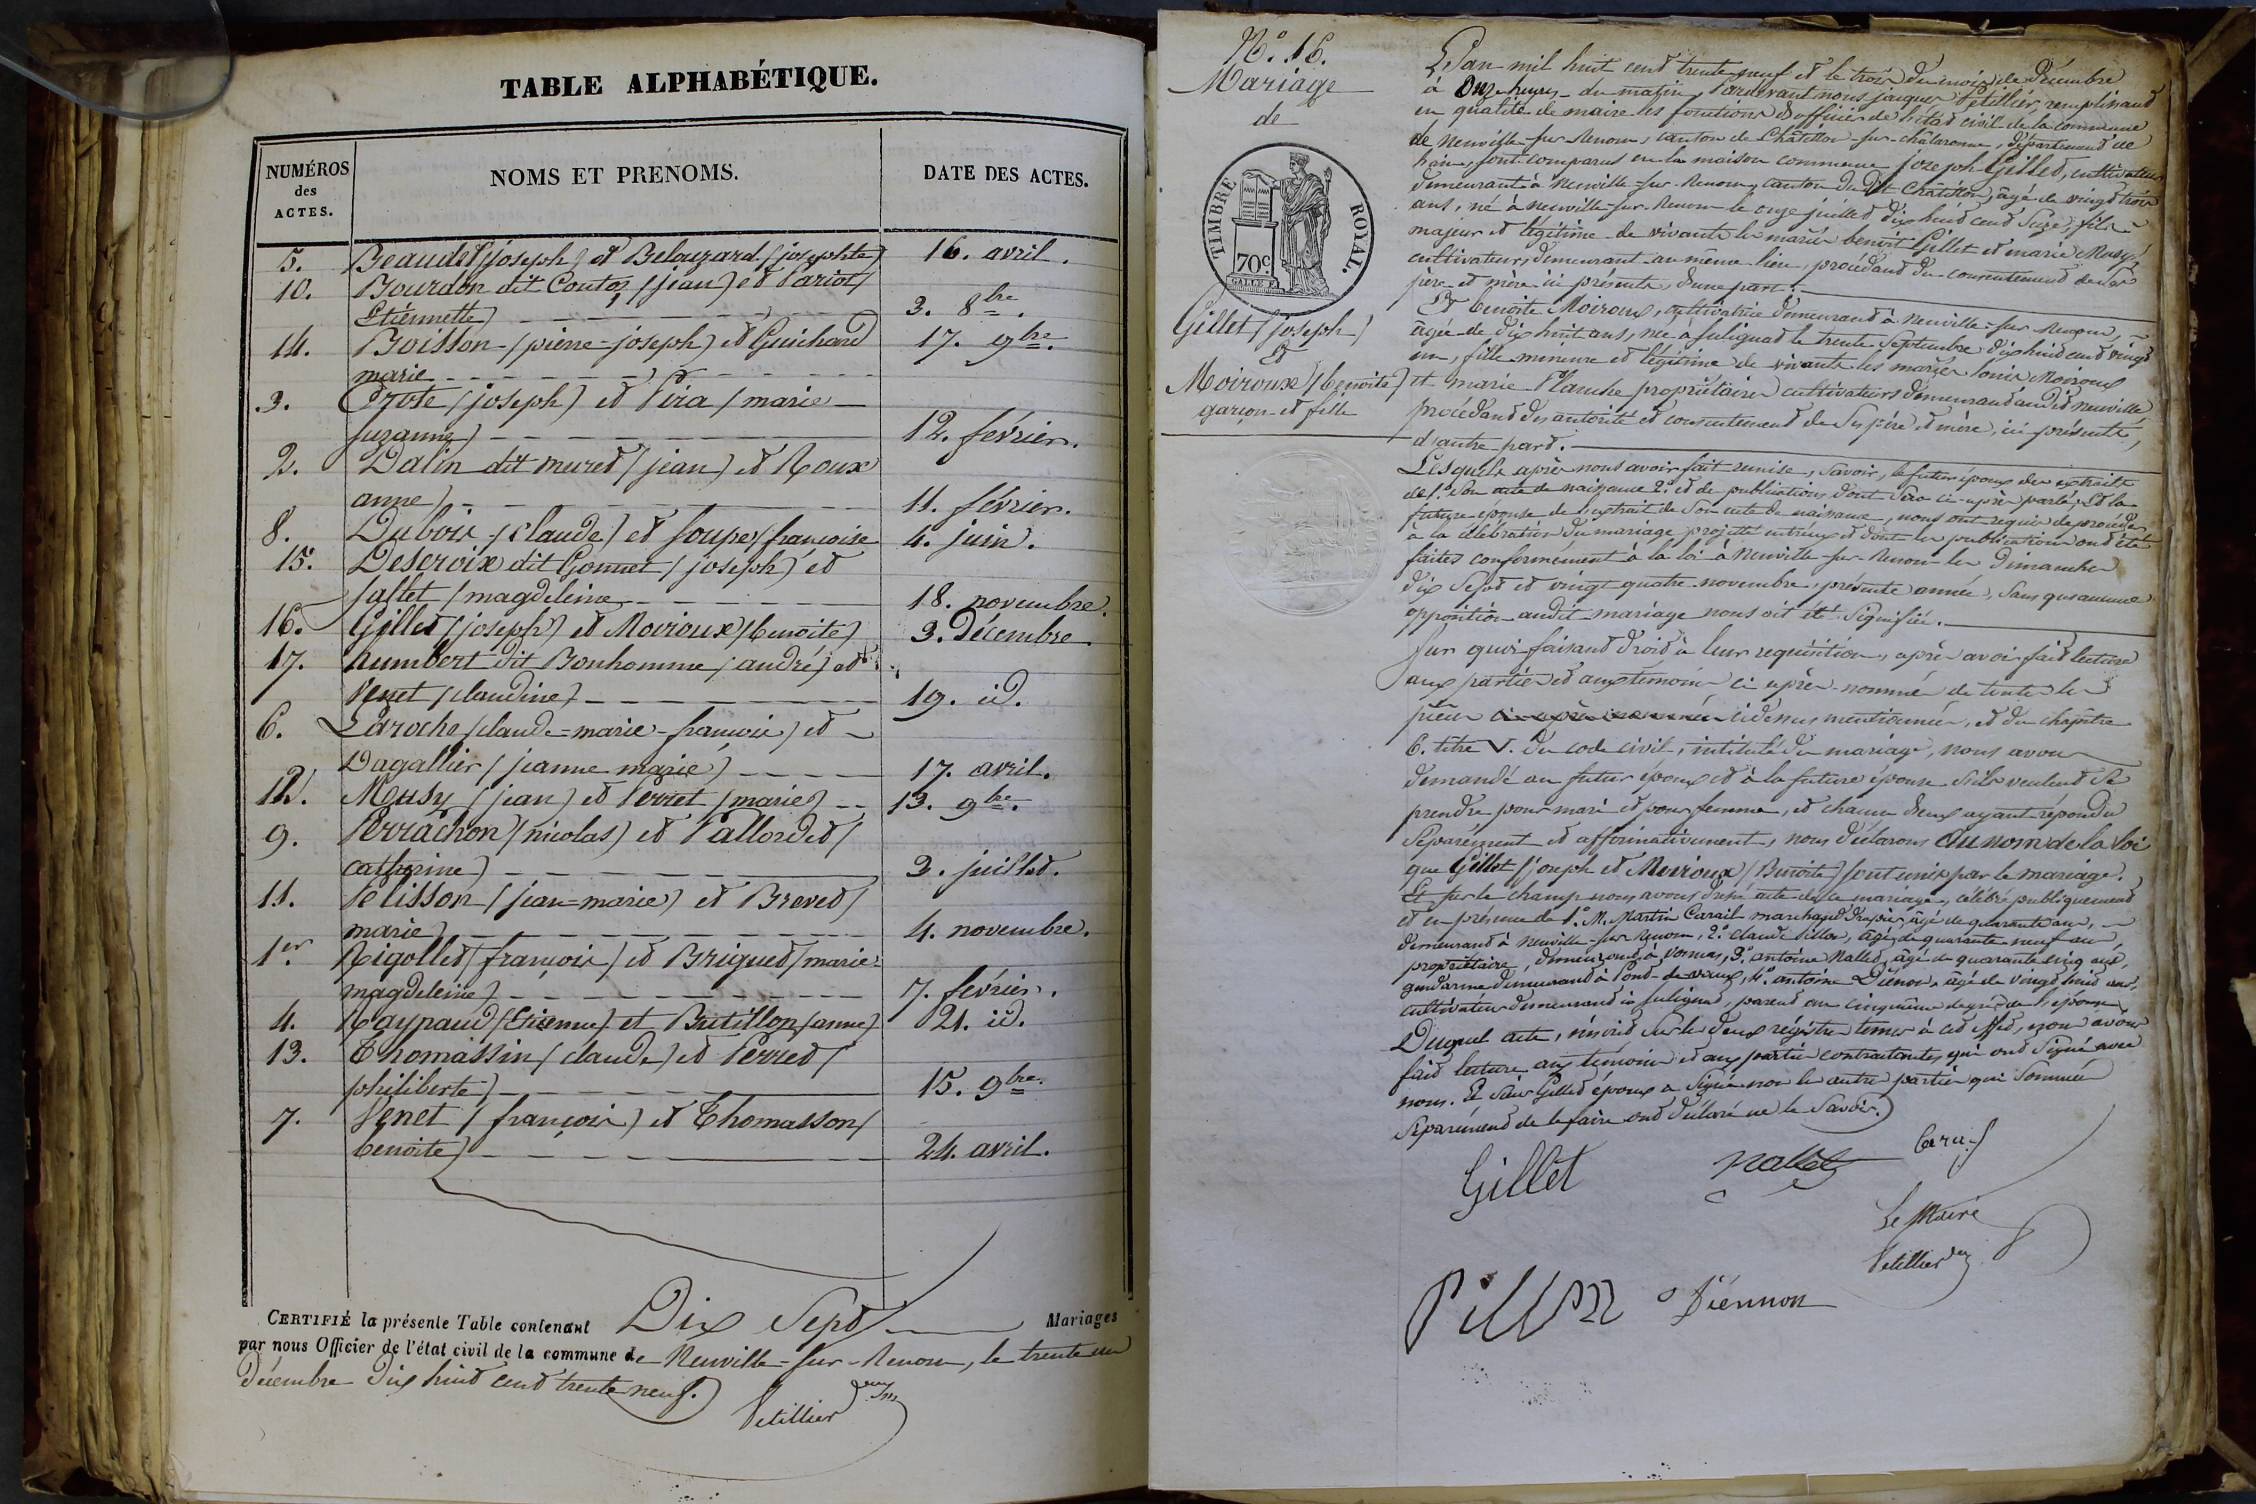 TABLE ALPHABÉTIQUE.
NUMÉROS des ACTES.
NOMS ET PRENOMS.
DATE DES ACTES.
5. Beaudet (joseph) et Belouzard (josephte) 16. avril.
10. Bourdon dit Contos (jean) et Pariot (
Etiennette) 3. 8bre.
14. Boisson (pierre=joseph) et Guichard 17. 9bre.
marie
3. Crote (joseph) et Pira (marie
suzanne) 12. février.
2. Dalin dit muret (jean) et Roux
anne) 11. février.
8. Dubois (claude) et Soupe (francoise 4. juin.
15. Descroix dit Gonnet (joseph) et
Sallet (magdeleine 18. novembre.
16. Gillet (joseph) et Moiroux (benoite) 3. Décembre
17. humbert dit Bonhomme (andré) et
Venet (claudine) 19. id.
6. Laroche (claude=marie=francois) et
Dagallier (jeanne marie) 17. avril.
12. Musy (jean) et Perret (marie) 13. 9bre.
9. Perrachon (nicolas) et Pallordet (
catherine) 3. juillet.
11. Pelisson (jean=marie) et Brevet (
marie) 4. novembre.
1er Rigollet (françois) et Briguet (marie=
magdeleine) 7. février.
4. Raynaud (Etienne) et Butillon (anne) 21. id.
13. Thomassin (claude) et Perret (
philiberte) 15. 9bre.
7. Venet (françois) et Thomasson (
benoite) 24. avril.
CERTIFIÉ la présente Table contenant Dix Sept Mariages
par nous Officier de l'état civil de la commune de Neuville=sur=Renom, le trente un
Décembre Dix huit cent trente neuf.
Petillier
N.° 16.
Mariage
de
TIMBRE ROYAL.
70c
Gillet (joseph)
Et
Moiroux (benoite)
garçon et fille
L'an mil huit cent trente neuf et le trois du mois de décembre
à Onze heures du matin, Pardevant nous jacques Petillier, remplissant
en qualité de maire les fonctions d'officier de l'état civil de la commune
de Neuville sur Renom, canton de Châtillon sur châlaronne, département de
l'ain, sont comparus en la maison commune joseph Gillet, cultivateur
demeurant à Neuville=sur=Renom, canton du dit Châtillon, âgé de vingt trois
ans, né à neuville=sur=Renom le onze juillet dix huit cent seize, fils
majeur et légitime de vivants les mariés benoit Gillet et marie Musy,
cultivateurs, demeurant au meme lieu, procédant du consentement de ses
père et mère ici présents, d'une part.
Et benoite Moiroux, cultivatrice demeurant à neuville=sur Renom,
âgée de dix huit ans, née à sulignat le trente Septembre dix huit cent vingt
un, fille mineure et légitime de vivants les mariés louis Moiroux
et marie Planche propriétaires cultivateurs demeurant audit neuville
procédant des autorité et consentement de ses père et mère, ici présents,
d'autre part.
Lesquels après nous avoir fait remise, savoir, le futur époux des extraits
de 1.° son acte de naissance 2.° et de publications dont sera ci-après parlé, Et la
future épouse de l'extrait de son acte de naissance, nous ont requis de procéder
à la célébration du mariage projetté entr'eux et dont les publications ont été
faites conformément à la loi à Neuville=sur Renom les Dimanches
dix sept et vingt quatre novembre, présente année, sans qu'aucune
opposition audit mariage nous ait été signifiée.
Sur quoi faisant droit à leur requisition, après avoir fait lecture
aux parties et aux témoins ci après nommés de toutes les
pièces cidessus mentionnées, et du chapitre
6. titre V. du code civil, intitulé du mariage, nous avons
demandé au futur époux et à la future épouse s'ils veulent se
prendre pour mari et pour femme, et chacun d'eux ayant répondu
séparément et affirmativement, nous déclarons au nom de la loi
que Gillet (joseph et Moiroux (Benoite) sont unis par le mariage.
Et sur le champ nous avons dressé acte de ce mariage, célébré publiquement
et en présence de 1.° M. Martin Carail marchand drapier, âgé de quarante ans,
demeurant à Neuville=sur Renom, 2.° claude Pillon, âgé de quarante neuf ans
propriétaire, demeurant à Vonnas, 3.° antoine Nallet, âgé de quarante cinq ans,
gendarme demeurant à Pont-de-vaux, 4.° antoine Diénon, âgé de vingt huit ans,
cultivateur demeurant à sulignat, parent au cinquième degré de l'épouse.
Duquel acte, inscrit sur les deux régistres tenus à cet effet, nous avons
fait lecture aux témoins et aux parties contractantes qui ont signé avec
nous. Et sieur Gillet époux a signé non les autres parties qui sommées
séparément de le faire ont déclaré ne le savoir.
Gillet
Nallet
Carail
Le Maire
Petillier
Pillon
Diennon